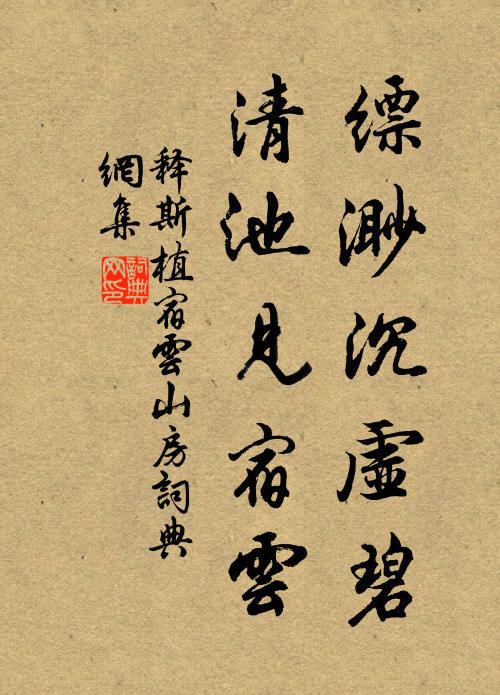 縹渺沉虛碧
清池見宿雲
释斯植宿雲山房詞典
網集
詞典
网印